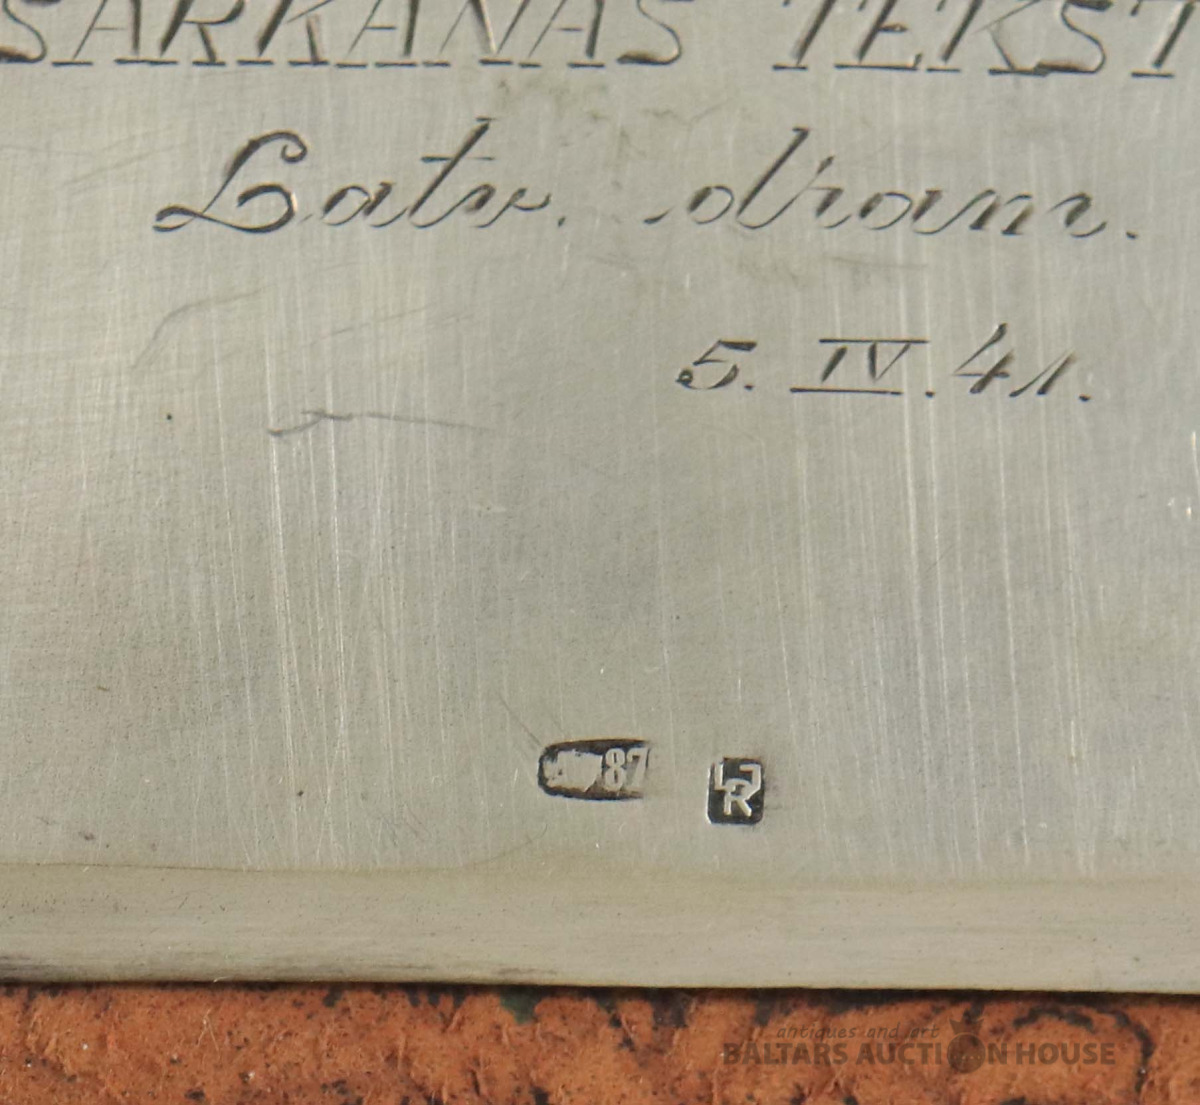 SARKANAS TEKST
Latv. dram.
5. IV. 41.
87
LJR
antiques and art
BALTARS AUCTION HOUSE